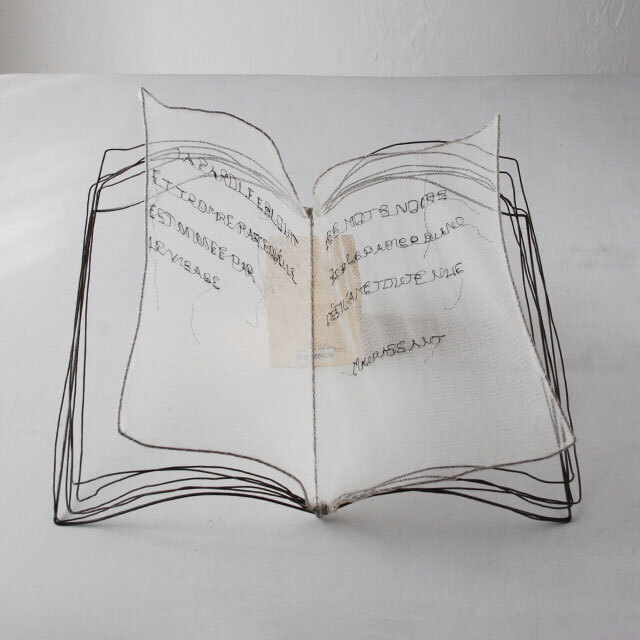 LA PAROLE EBLOUIT
ET TROMPE PARCEQU'ELLE
EST MIMEE PAR
LE VISAGE
LES MOTS NOIRS
SUR LE PAPIER BLANC
C'EST L'AME TOUTE NUE
MAUPASSANT